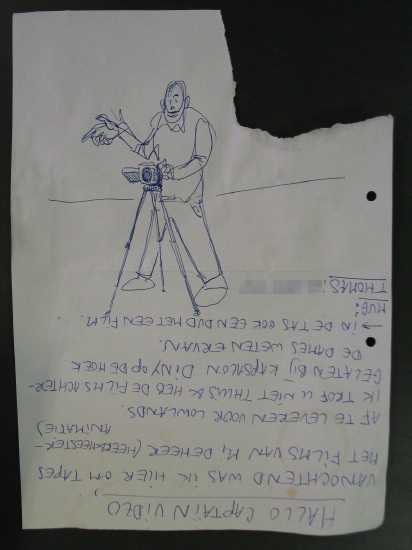 HALLO CAPTAIN VIDEO,
VANOCHTEND WAS IK HIER OM TAPES
MET FILMS VAN M, DEMEER (HEERMEESTER-
ANIMATIE)
AF TE LEVEREN VOOR LOWLANDS.
IK TROF U NIET THUIS & HEB DE FILMS ACHTER-
GELATEN BIJ KAPSALON DINY OP DE HOEK
DE DAMES WETEN ERVAN.
→ IN DE TAS OOK EEN DVD MET EEN FILM.
MVG:
THOMAS.